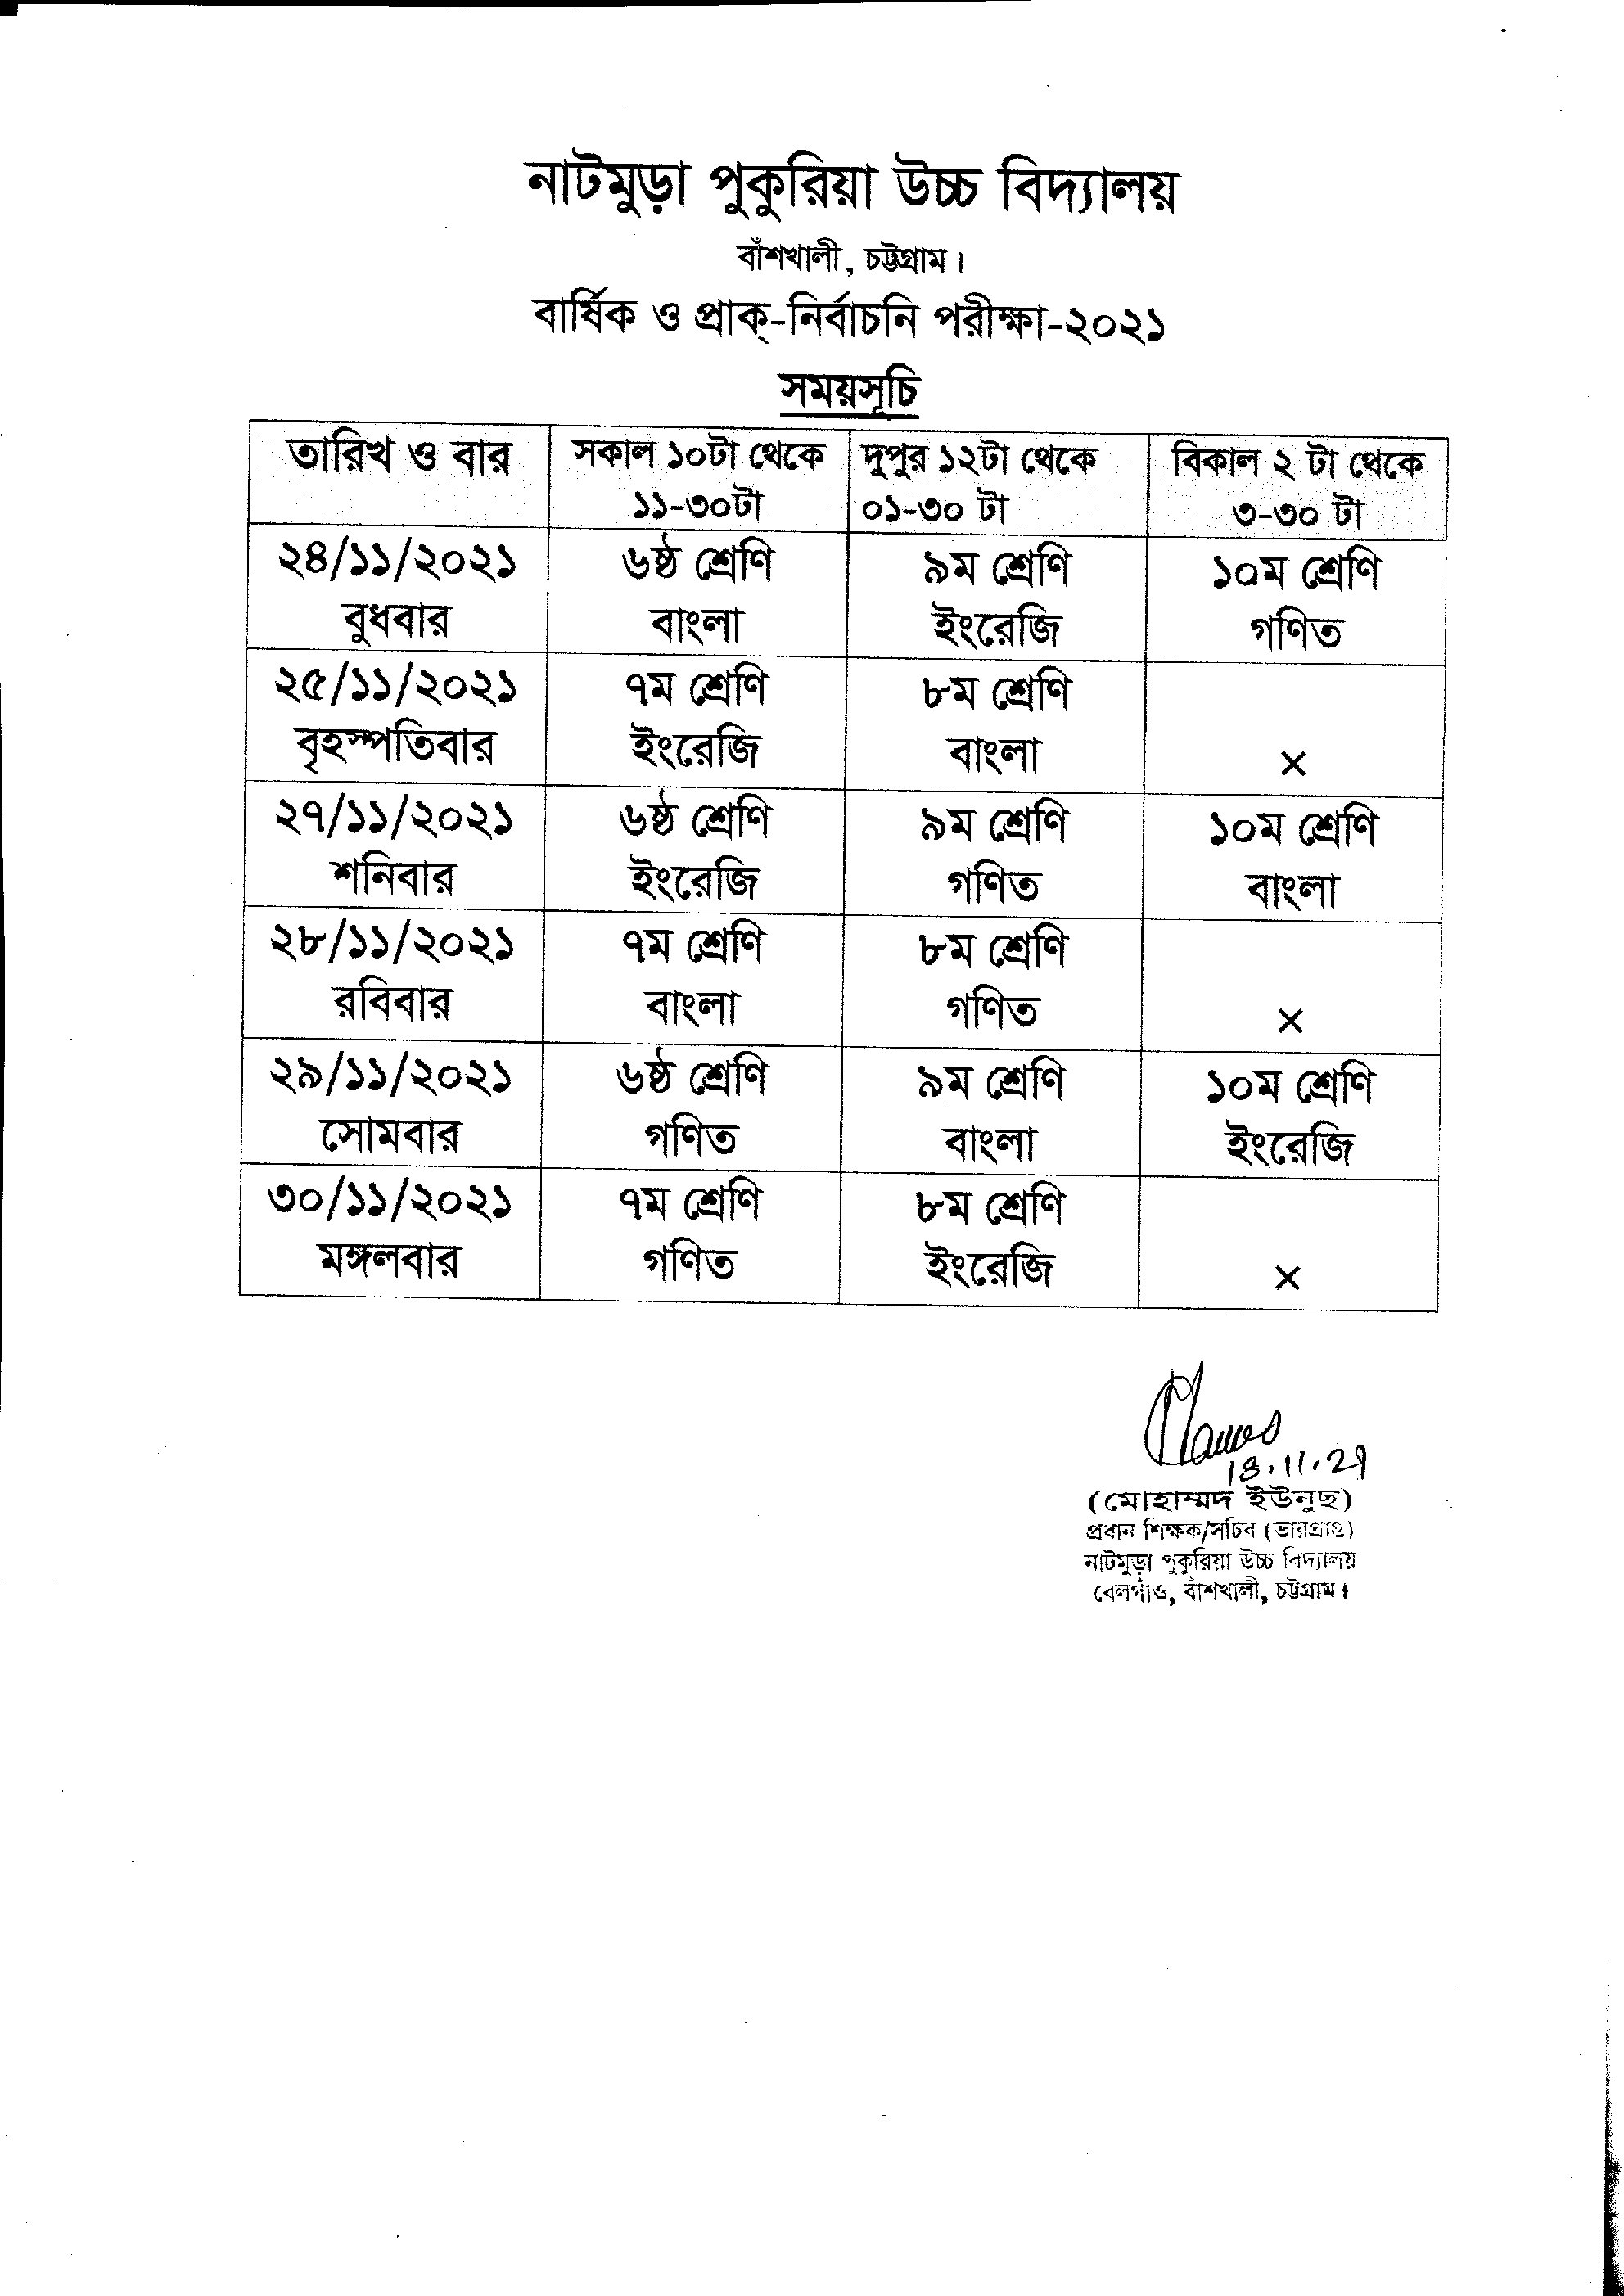 নাটমুড়া পুকুরিয়া উচ্চ বিদ্যালয়
বাঁশখালী, চট্টগ্রাম।
বার্ষিক ও প্রাক্-নির্বাচনি পরীক্ষা-২০২১
সময়সূচি
তারিখ ও বার সকাল ১০টা থেকে দুপুর ১২টা থেকে বিকাল ২ টা থেকে
১১-৩০টা ০১-৩০ টা ৩-৩০ টা
২৪/১১/২০২১ ৬ষ্ঠ শ্রেণি ৯ম শ্রেণি ১০ম শ্রেণি
বুধবার বাংলা ইংরেজি গণিত
২৫/১১/২০২১ ৭ম শ্রেণি ৮ম শ্রেণি
বৃহস্পতিবার ইংরেজি বাংলা ×
২৭/১১/২০২১ ৬ষ্ঠ শ্রেণি ৯ম শ্রেণি ১০ম শ্রেণি
শনিবার ইংরেজি গণিত বাংলা
২৮/১১/২০২১ ৭ম শ্রেণি ৮ম শ্রেণি
রবিবার বাংলা গণিত ×
২৯/১১/২০২১ ৬ষ্ঠ শ্রেণি ৯ম শ্রেণি ১০ম শ্রেণি
সোমবার গণিত বাংলা ইংরেজি
৩০/১১/২০২১ ৭ম শ্রেণি ৮ম শ্রেণি
মঙ্গলবার গণিত ইংরেজি ×
(মোহাম্মদ ইউনুছ)
প্রধান শিক্ষক/সচিব (ভারপ্রাপ্ত)
নাটমুড়া পুকুরিয়া উচ্চ বিদ্যালয়
বেলগাঁও, বাঁশখালী, চট্টগ্রাম।